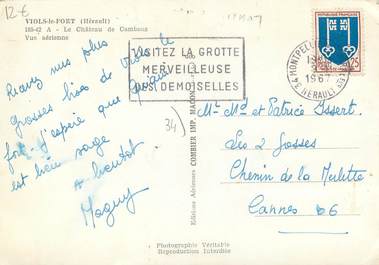 12 €
VIOLS-le-FORT (Hérault)
185-42 A - Le Château de Cambous
Vue aérienne
Recevez nos plus
grosses bises de Viols le
fort. J'espère que
est bien sage
a bientôt
Maguy
VISITEZ LA GROTTE
MERVEILLEUSE
DES DEMOISELLES
MONTPELLIER
1967
HERAULT
0,25
34)
Editions Aériennes COMBIER IMP. MACON
Mr Md et Patrice Issert
Les 2 Gosses
Chemin de la Mulitte
Cannes 06
Photographie Véritable
Reproduction Interdite